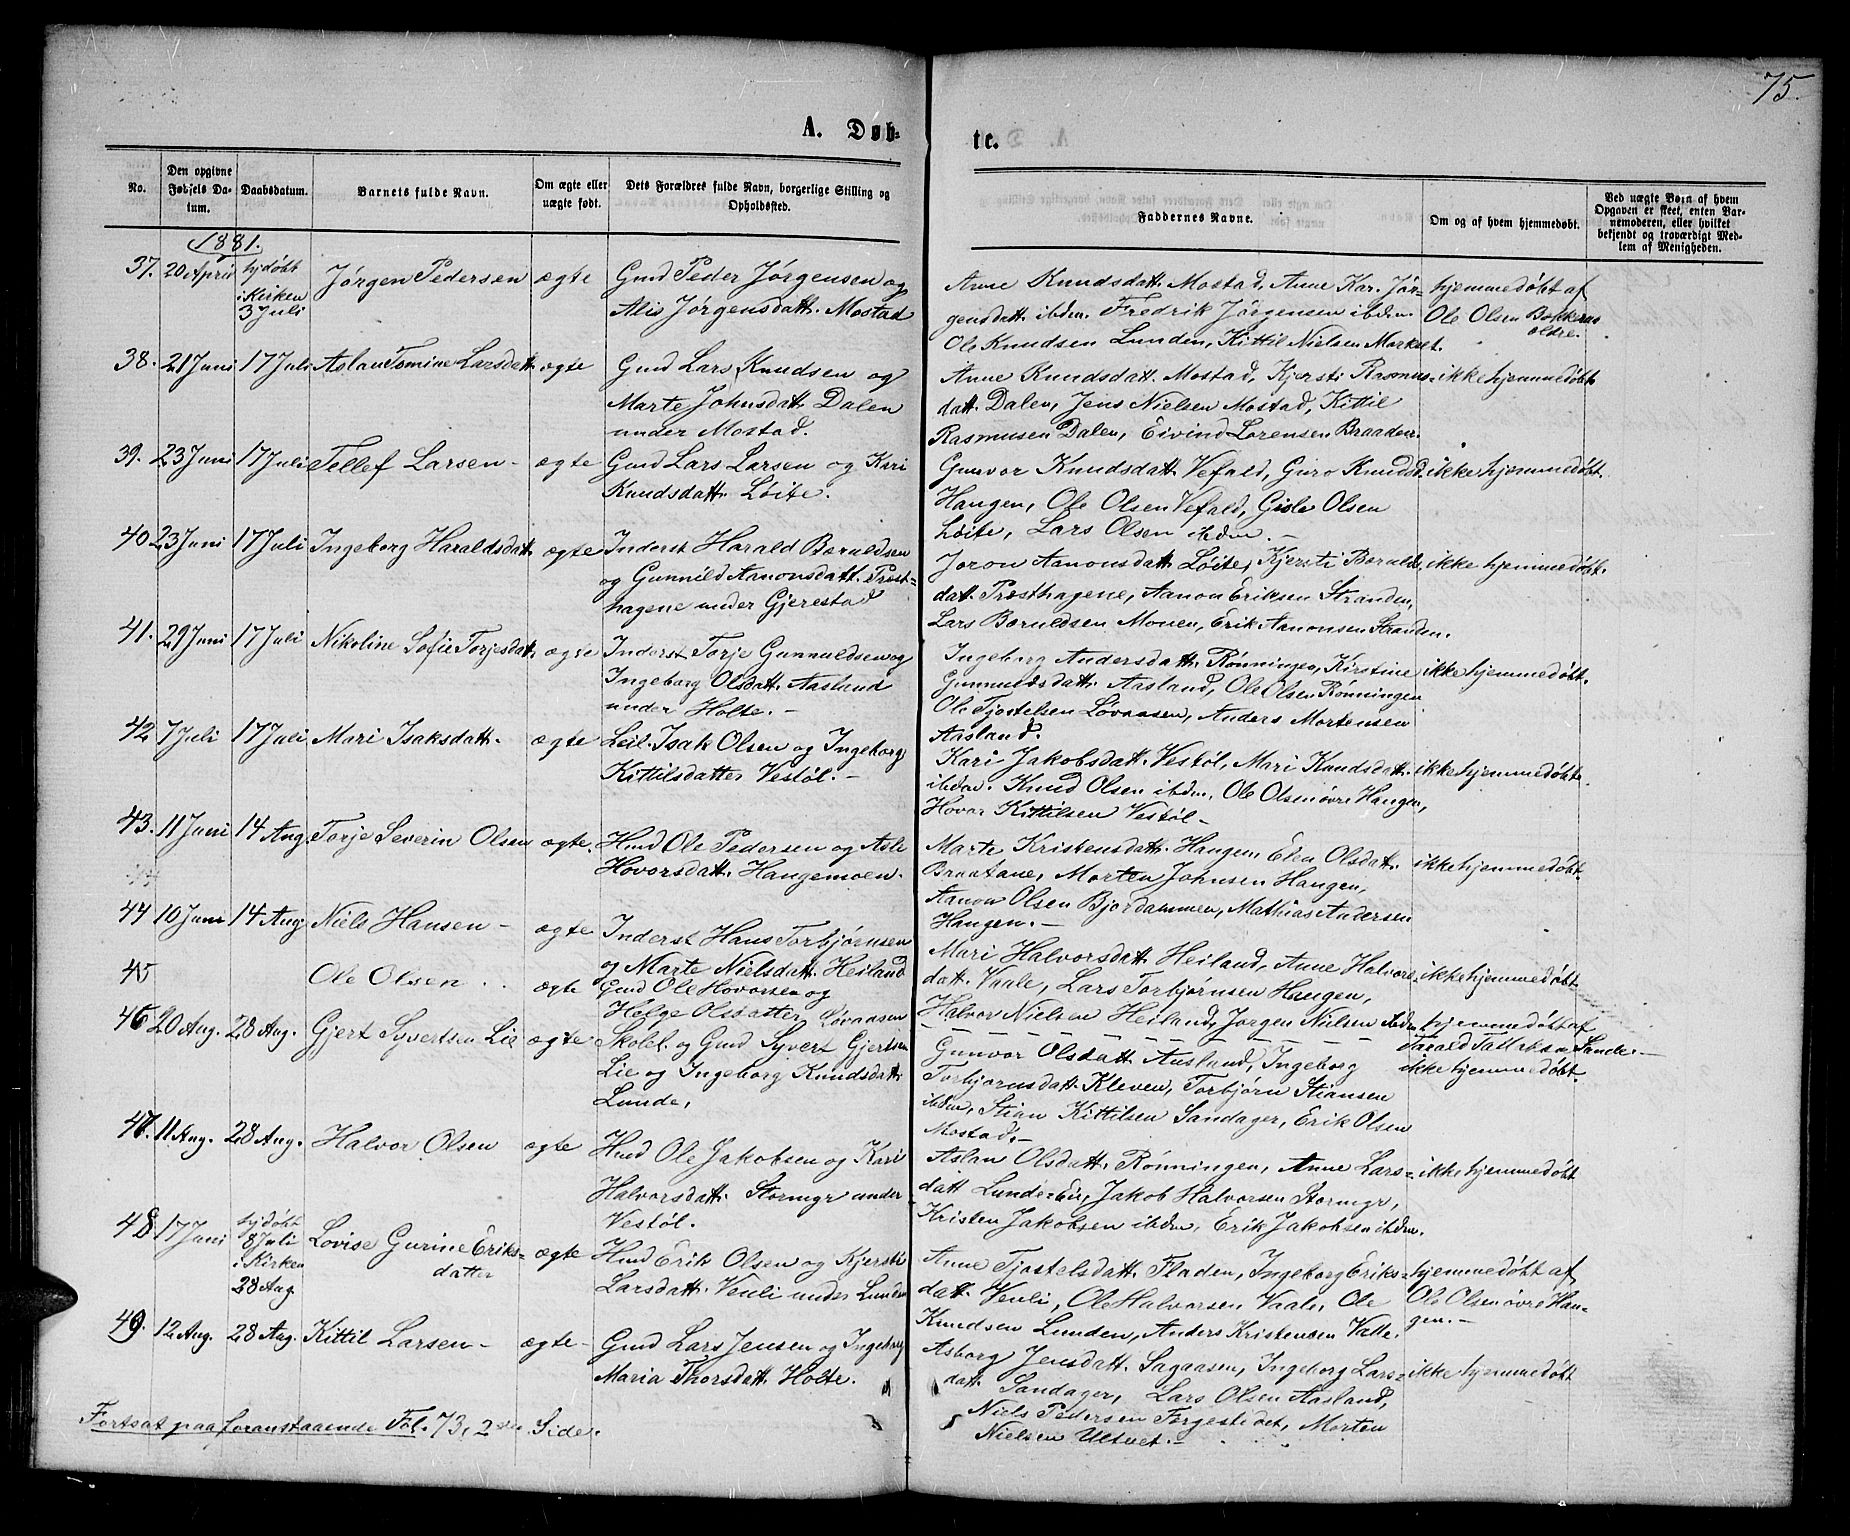 75.
A. Døb-
te.
No.
Den opgivne Fødsels Datum.
Daabsdatum.
Barnets fulde Navn.
Om ægte eller uægte født.
Dets Forældres fulde Navn, borgerlige Stilling og Opholdssted.
Faddernes Navne.
Om og af hvem hjemmedøbt.
Ved uægte Børn af hvem Opgaven er skeet, enten Barnemoderen, eller hvilket bekjendt og troværdigt Medlem af Menigheden.
1881.
37. 20 April hjdøbt i Kirken 3 Juli Jørgen Pedersen ægte Gmd Peder Jørgensen og
Alis Jørgensdatt. Mostad
Anne Knudsdatt. Mostad, Anne Kar. Jør-
gensdatt. ibdm. Fredrik Jørgensen ibdm.
Ole Knudsen Lunden, Kittil Nielsen Morkset.
hjemmedøbt af
Ole Olsen
38. 21 Juni 17 Juli Aslau Tomine Larsdatt. ægte Gmd Lars Knudsen og
Marte Johnsdatt. Dalen
under Mostad.
Anne Knudsdatt. Mostad, Kjersti Rasmus-
datt. Dalen, Jens Nielsen Mostad, Kittil
Rasmusen Dalen, Eivind Lorensen
ikke hjemmedøbt
39. 23 Juni 17 Juli Tellef Larsen - ægte Gmd Lars Larsen og Kari
Knudsdatt. Løite.
Gunvor Knudsdatt. Vefald, Guro Knudsd.
Haugen, Ole Olsen Vefald, Gisle Olsen
Løite, Lars Olsen ibdm. -
ikke hjemmedøbt.
40. 23 Juni 17 Juli Ingeborg Haraldsdatt. ægte Inderst Harald Beruldsen
og Gunnild Aanonsdatt. Præst-
hagene under Gjerestad
Joron Aanonsdatt. Løite, Kjersti Berulds
datt. Præsthagene, Aanon Eriksen Stranden,
Lars Beruldsen Monen, Erik Aanonsen Stranden.
ikke hjemmedøbt.
41. 29 Juni 17 Juli Nikoline Sofie Torjesdatt. ægte Inderst Torje Gunnuldsen og
Ingeborg Olsdatt. Aasland
under Holte. -
Ingeborg Andersdatt. Rønningen, Kirstine
Gunnuldsdatt. Aasland, Ole Olsen Rønningen
Ole Tjostelsen Løvaasen, Anders Mortensen
Aasland.
ikke hjemmedøbt.
42 7 Juli 17 Juli Mari Isaksdatt. - ægte Leil. Isak Olsen og Ingeborg
Kittilsdatter Vestøl. -
Kari Jakobsdatt. Vestøl, Mari Knudsdatt.
ibdm. Knud Olsen ibdm, Ole Olsen øvre Haugen,
Hovar Kittilsen Vestøl -
ikke hjemmedøbt.
43. 11 Juni 14 Aug. Torje Severin Olsen ægte. Hmd Ole Pedersen og Asle
Hovorsdatt. Haugemoen.
Marte Kristensdatt. Haugen Elen Olsdatt.
Braatane, Morten Johnsen Haugen,
Aanon Olsen Bjordammen, Mathias Andersen
Haugen. -
ikke hjemmedøbt.
44 10 Juni 14 Aug. Niels Hansen - ægte Inderst Hans Torbjørnsen
og Marte Nielsdatt. Heiland
Mari Halvorsdatt. Heiland, Anne Halvors-
datt. Vaale, Lars Torbjørnsen Haugen,
Halvor Nielsen Heiland, Jørgen Nielsen ibdm
ikke hjemmedøbt
45 Ole Olsen . . ægte Gmd Ole Hovorsen og
Helge Olsdatter Løvaasen
hjemmedøbt af
Sande. -
46 20 Aug. 28 Aug. Gjert Syvertsen Lie ægte. Skolel. og Gmd Syvert Gjertsen
Lie og Ingeborg Knudsdatt.
Lunde,
Gunvor Olsdatt. Aasland, Ingeborg
Torbjørnsdatt. Kleven, Torbjørn Stiansen
ibdm, Stian Kittilsen Sandager, Erik Olsen
Mostad. -
ikke hjemmedøbt.
47. 11 Aug. 28 Aug. Halvor Olsen ægte Hmd Ole Jakobsen og Kari
Halvorsdatt. Stormyr under
Vestøl.
Aslau Olsdatt. Rønningen, Anne Lars-
datt Lunde-Eie, Jakob Halvorsen Stormyr,
Kristen Jakobsen ibdm, Erik Jakobsen ibdm.
ikke hjemmedøbt
48 17 Juni hjdøbt 8 Juli i Kirken 28 Aug. Lovise Gurine Eriks-
datter ægte Hmd Erik Olsen og Kjersti
Larsdatt. Venli under Lunden
Anne Tjostelsdatt. Fladen, Ingeborg Eriks-
datt. Venli, Ole Halvorsen Vaale, Ole
Knudsen Lunden, Anders Kristensen Valle.
hjemmedøbt af
Ole Olsen øvre Hau-
gen. -
49. 12 Aug. 28 Aug. Kittil Larsen - ægte - Gmd Lars Jensen og Ingeborg
Maria Thorsdatt. Holte.
Asborg Jensdatt. Sagaasen, Ingeborg Lars-
datt. Sandager, Lars Olsen Aasland,
Niels Pedersen Fergestedet, Morten
Nielsen Ultvet. -
ikke hjemmedøbt
Fortsat paa foranstaaende Fol. 73, 2den Side.